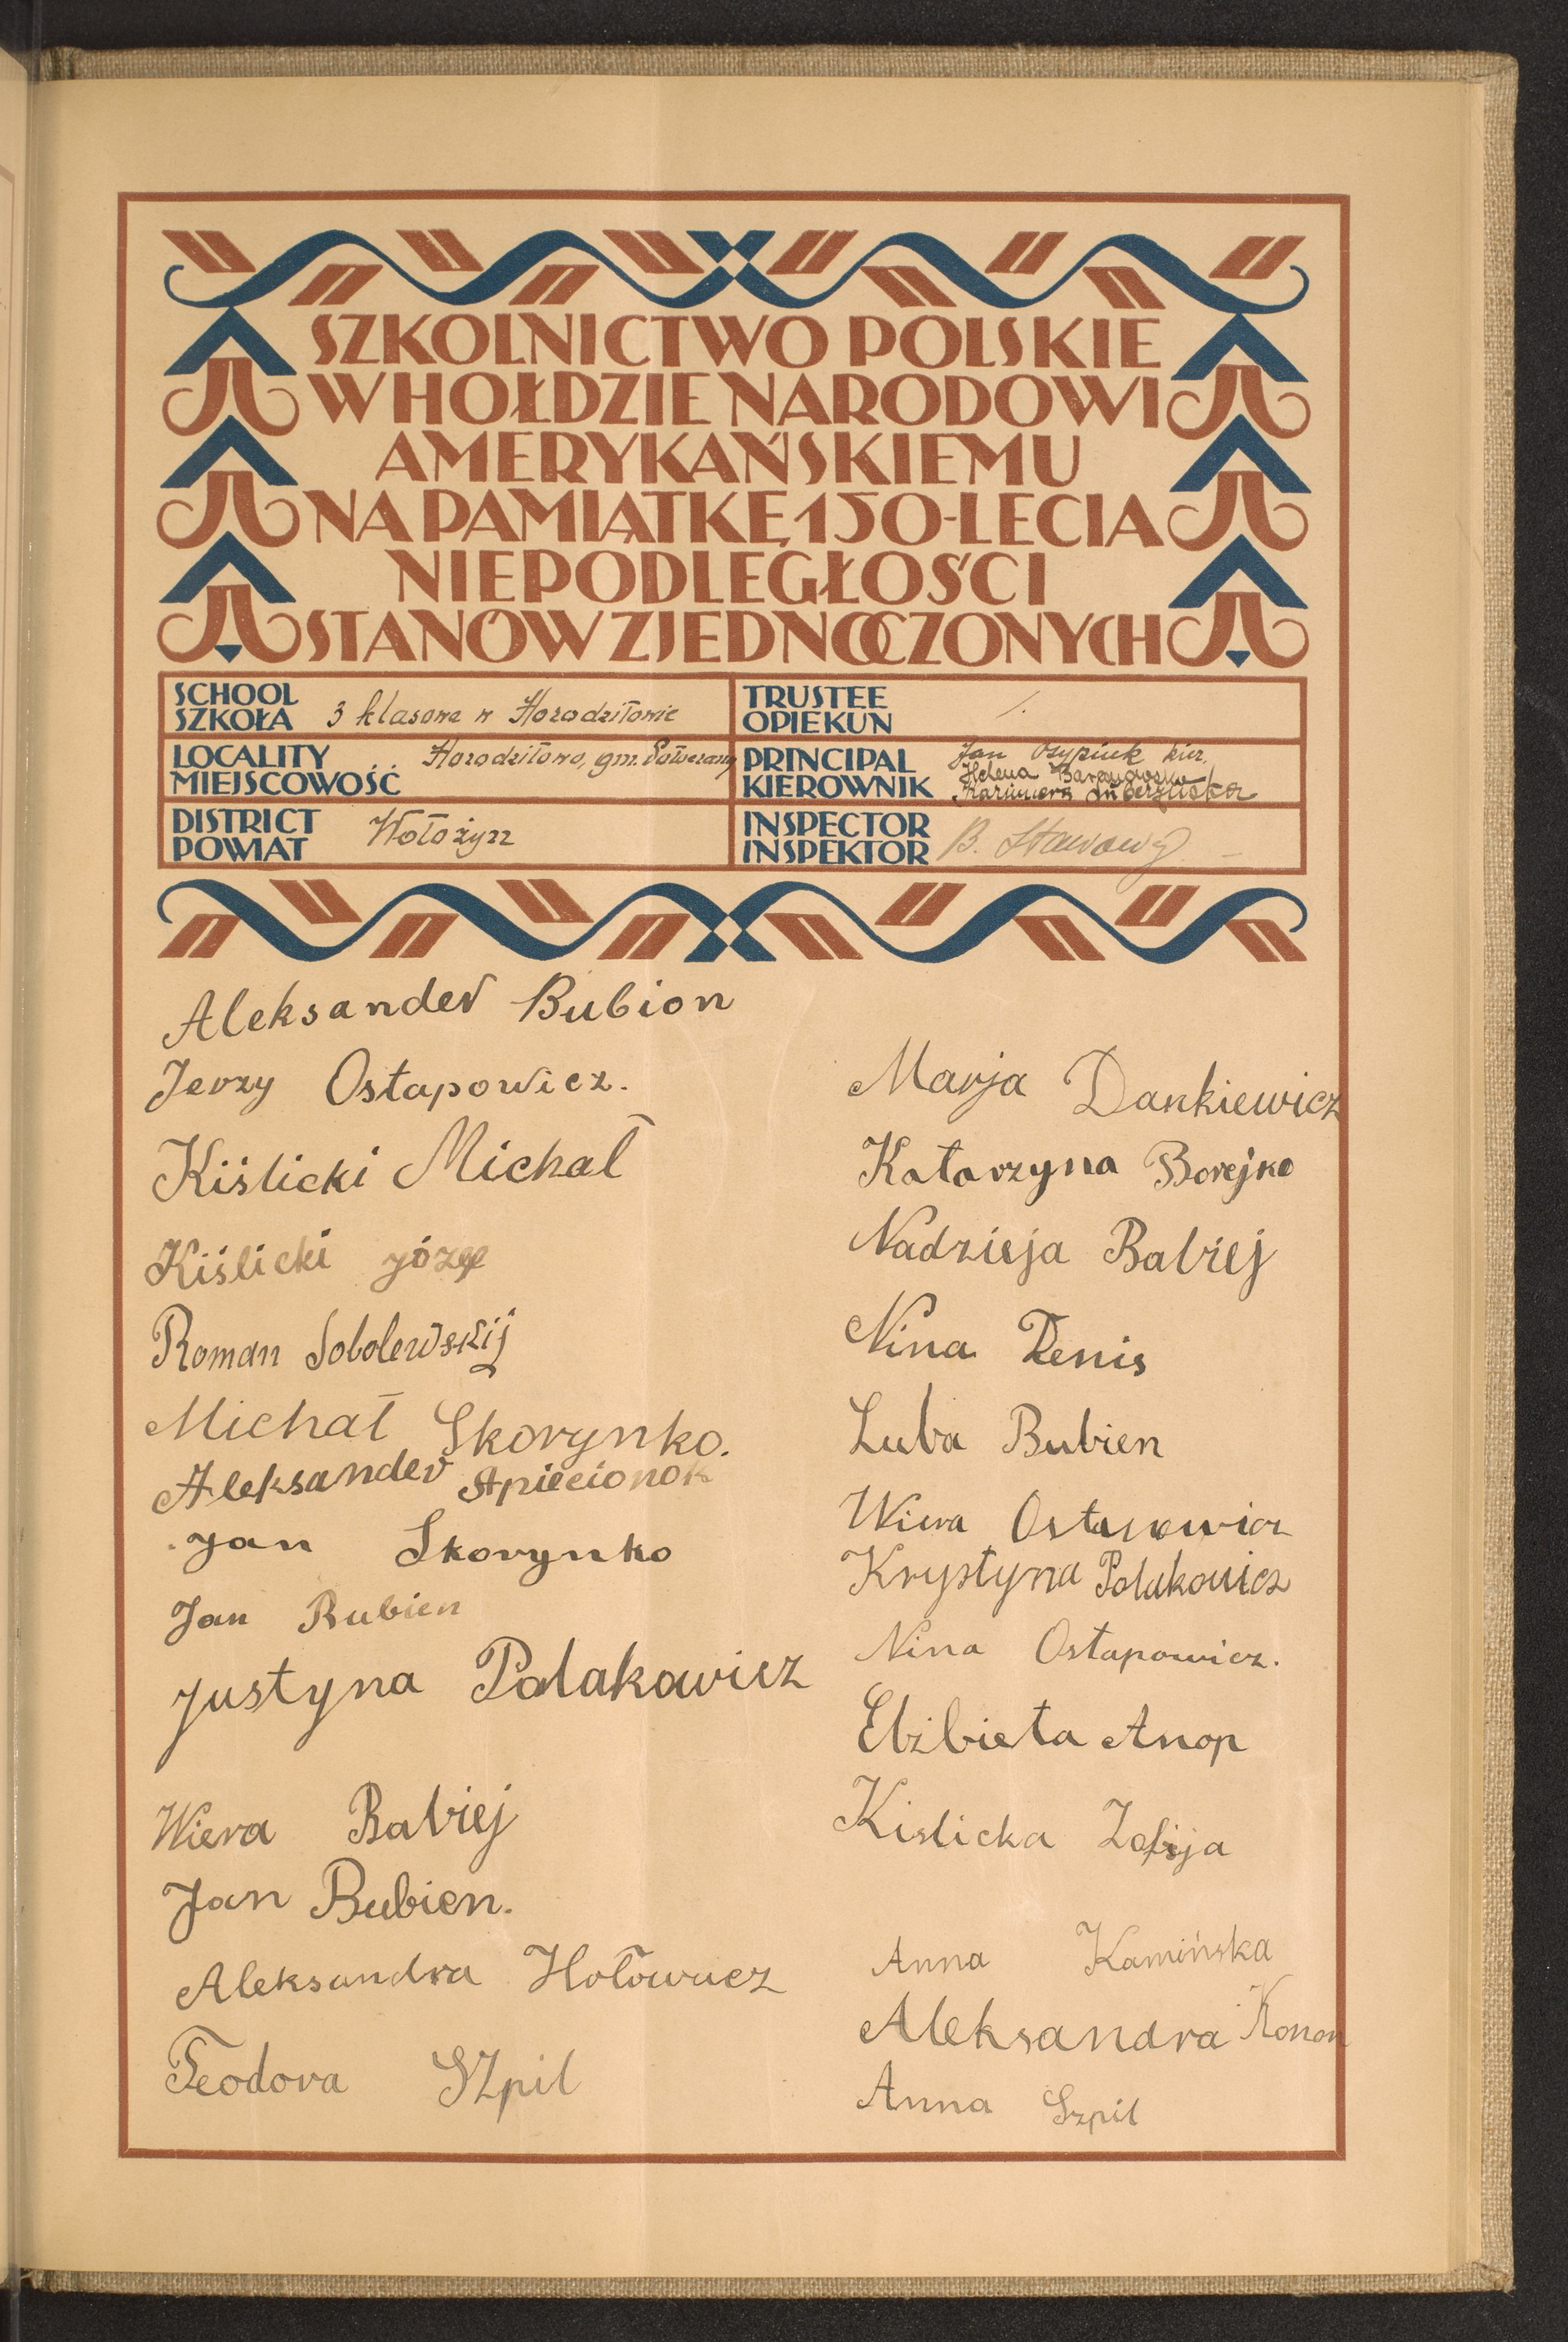 SZKOLNICTWO POLSKIE
W HOŁDZIE NARODOWI
AMERYKAŃSKIEMU
NA PAMIĄTKĘ 150-LECIA
NIEPODLEGŁOŚCI
STANÓW ZJEDNOCZONYCH
SCHOOL
SZKOŁA 3 klasowa w Horodziłowie
LOCALITY
MIEJSCOWOŚĆ Horodziłowo, gm. Połoczany
DISTRICT
POWIAT Wołożyn
TRUSTEE
OPIEKUN
PRINCIPAL
KIEROWNIK
Jan Osypiuk kier.
Helena Baranowska
Kazimiera
INSPECTOR
INSPEKTOR B.
Aleksander Bubion
Jerzy Ostapowicz.
Kiślicki Michał
Kiślicki Józef
Roman Sobolewskij
Michał Skorynko.
Aleksander Apiecionok
Jan Skorynko
Jan Bubien
Justyna Polakowicz
Wiera Babiej
Jan Bubien.
Aleksandra Hołowacz
Teodora SZpil
Marja Dankiewicz
Katarzyna Borejko
Nadzieja Babiej
Nina Denis
Luba Bubien
Wiera Ostapowicz
Krystyna Polakowicz
Nina Ostapowicz.
Elżbieta Anop
Kislicka Zofija
Anna Kamińska
Aleksandra Konon
Anna Szpil